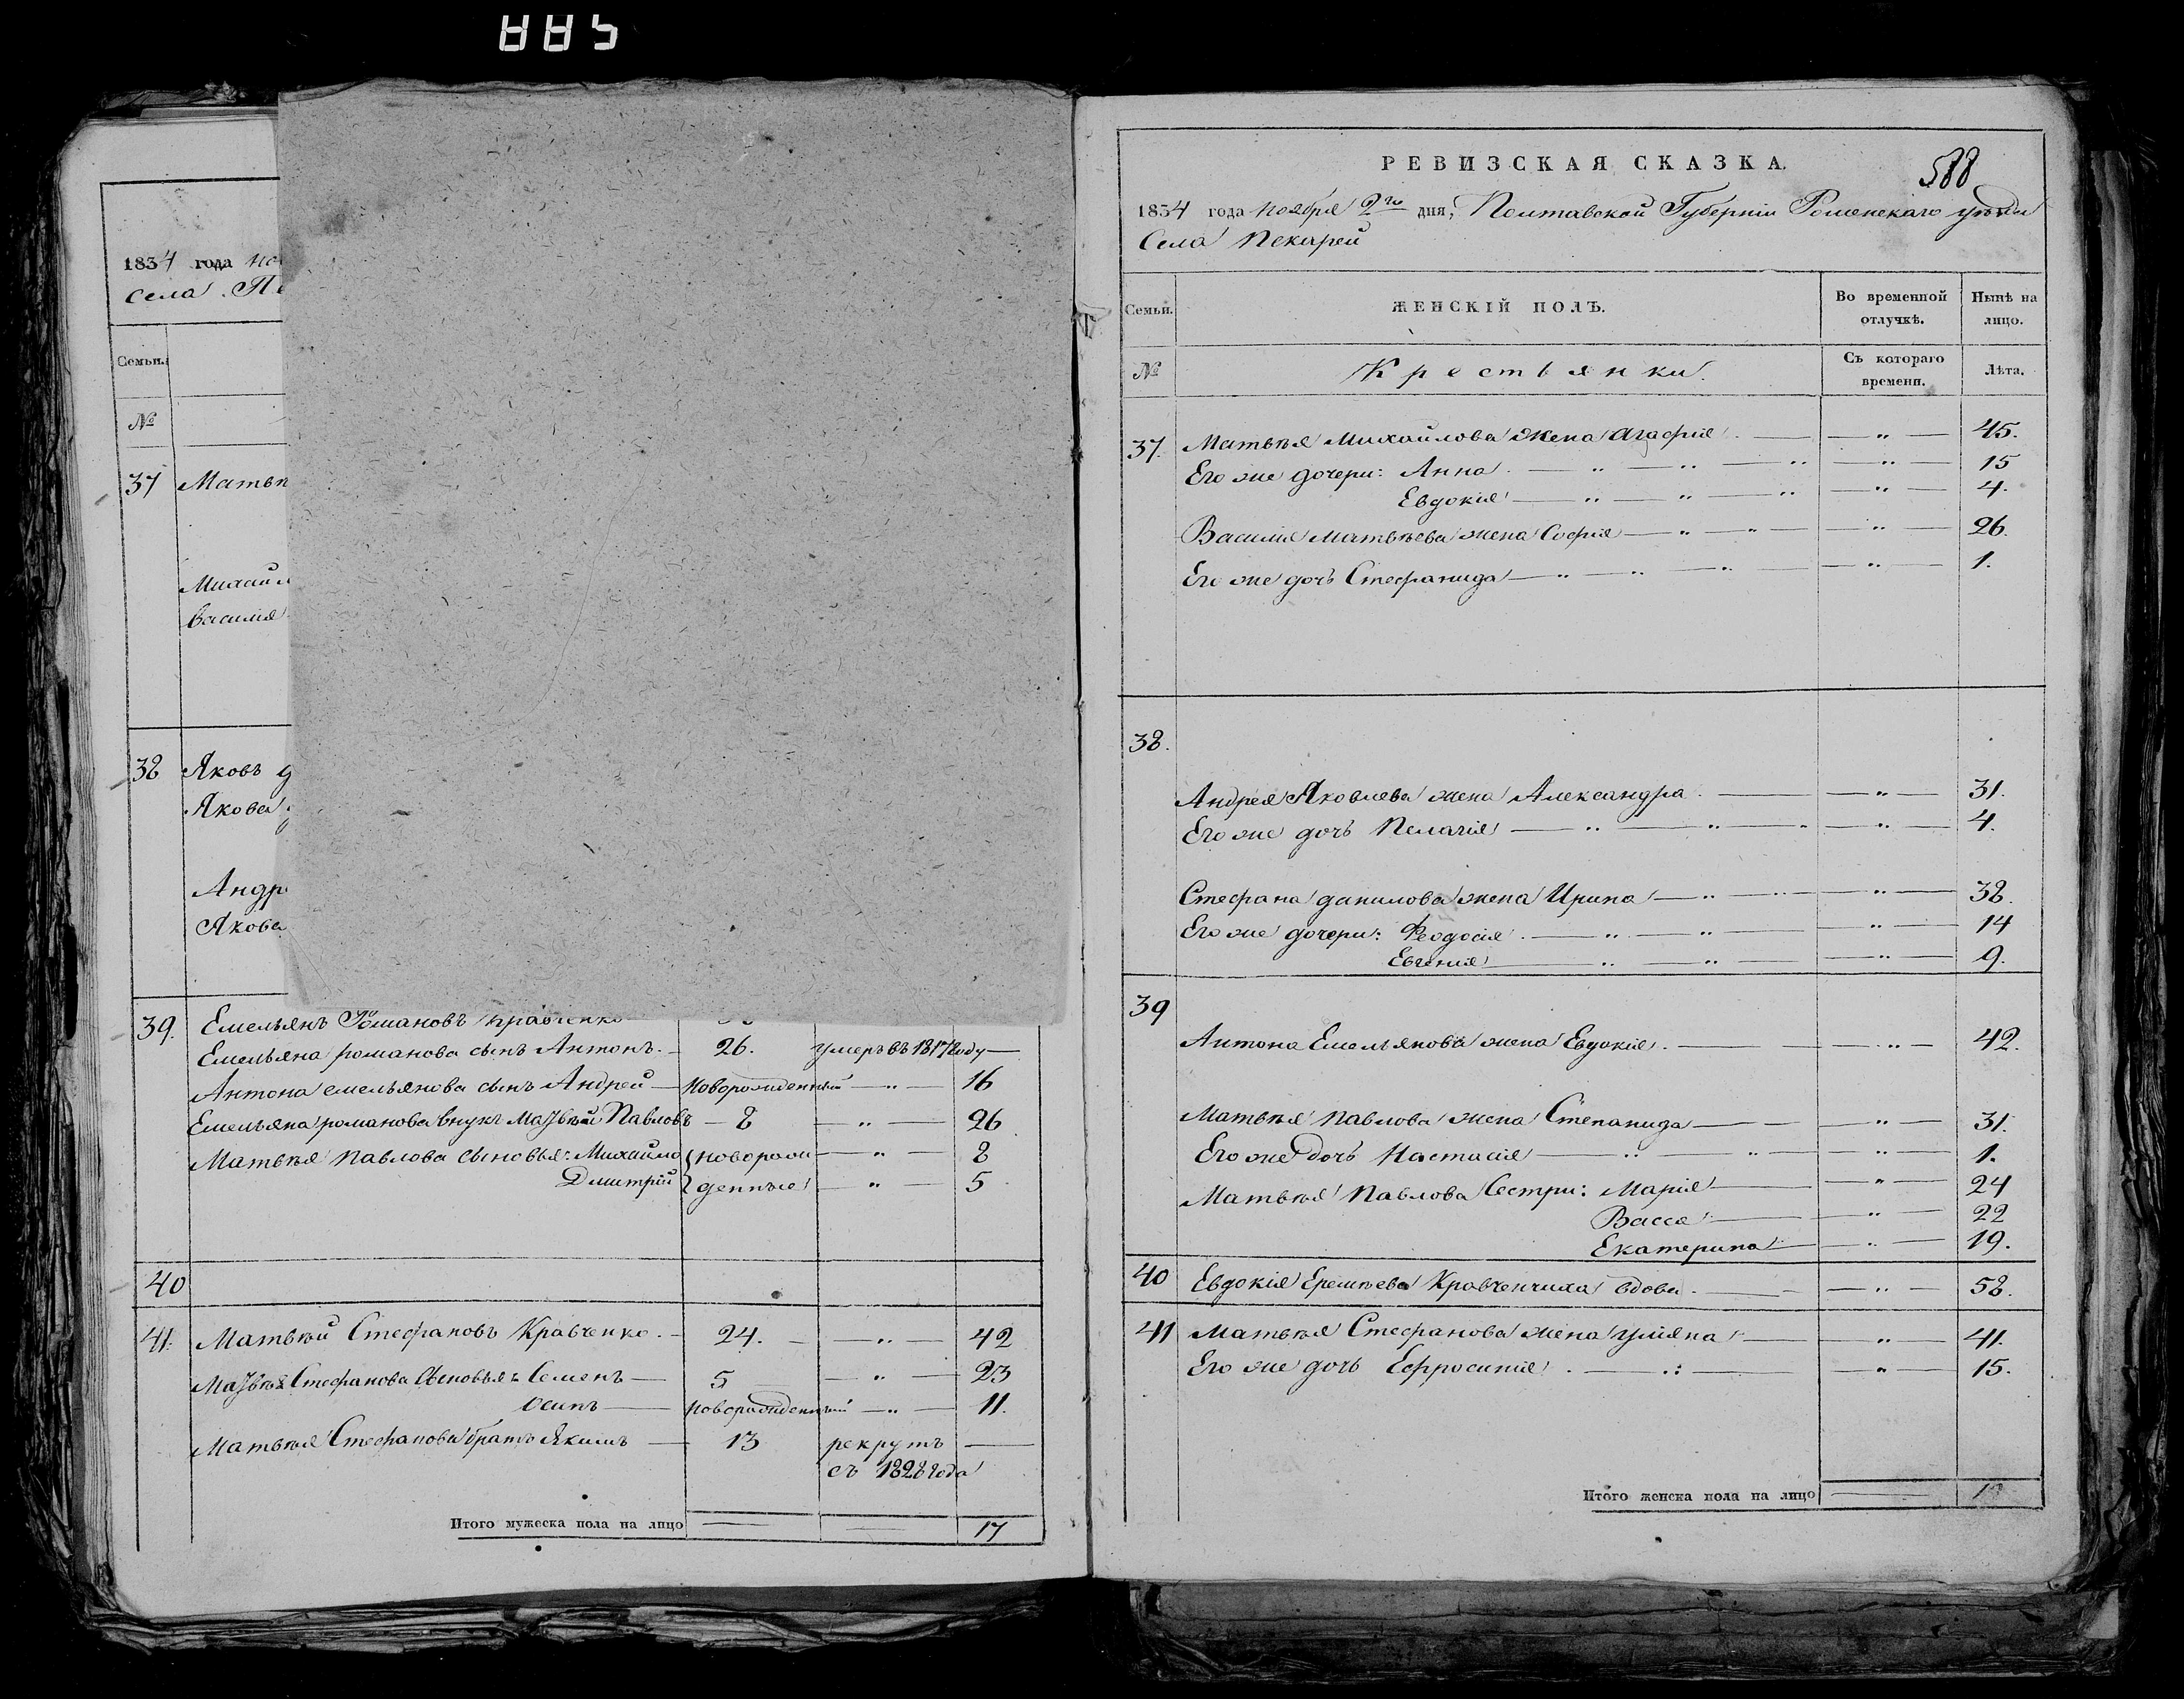 588
1834 года но
села Пе
Семьи.
№
37 Матвѣ
Михайл
Василія
38 Яковъ
Якова
Андр
Якова
39. Емельянъ Романовъ Кравченко
Емельяна романова сынъ Антонъ. 26. умеръ въ 1817 году
Антона емельянова сынъ Андрей новорожденный " 16
Емельяна романова внукъ Матвѣй Павловъ 8 " 26
Матвѣя Павлова сыновья: Михайло новорож " 8
Дмитрій денные " 5
40
41. Матвѣй Стефановъ Кравченко. 24. " 42
Матвѣя Стефанова сыновья: Семенъ 5 " 23
Осипъ новорожденный " 11.
Матвѣя Стефанова братъ Якимъ 13 рекрутъ
съ 1828 года
Итого мужеска пола на лицо 17
РЕВИЗСКАЯ СКАЗКА.
588
1834 года Ноября 2го дня, Полтавской Губерніи Роменскаго уѣзда
Села Пекарей
Семьи. ЖЕНСКІЙ ПОЛЪ. Во временной отлучкѣ. Нынѣ на лицо.
№ Крестьянки. Съ котораго времени. Лѣта.
37. Матвѣя Михайлова жена Агафія " 45.
Его же дочери: Анна " 15
Евдокія " 4.
Василія Матвѣева жена Софія " 26.
Его же дочь Стефанида " 1.
38.
Андрея Яковлева жена Александра " 31.
Его же дочь Пелагія " 4.
Стефана данилова жена Ирина " 38.
Его же дочери: Феодосія " 14
Евгенія " 9.
39
Антона Емельянова жена Евдокія. " 42.
Матвѣя Павлова жена Степанида " 31.
Его же дочь Настасія " 1.
Матвѣя Павлова Сестри: Марія " 24
Васса " 22
Екатерина " 19.
40 Евдокія Еремѣева Кравченчиха вдова " 58.
41 Матвѣя Стефанова жена Уліяна " 41.
Его же дочь Ефросинія " 15.
Итого женска пола на лицо